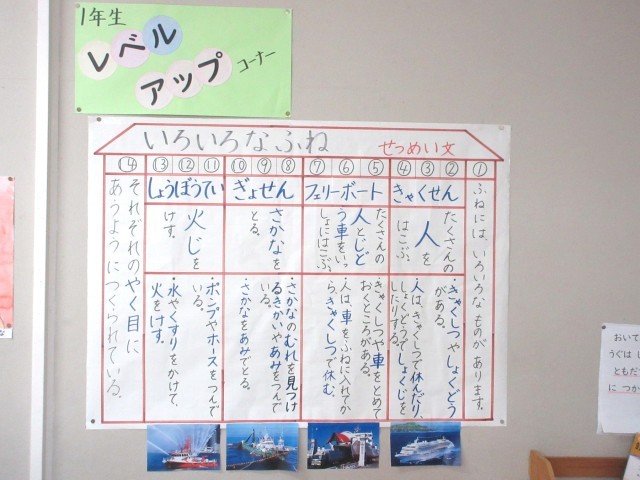 1年生
レベル
アップ
コーナー
いろいろなふね
せつめい文
①
ふねには、いろいろなものがあります。
②
③
④
きゃくせん
たくさんの
人を
はこぶ。
・きゃくしつやしょくどう
がある。
・人はきゃくしつで休んだり、
しょくどうでしょくじを
したりする。
⑤
⑥
⑦
フェリーボート
たくさんの
人とじど
う車をいっ
しょにはこぶ。
・きゃくしつや車をとめて
おくところがある。
・人は、車をふねに入れてか
ら、きゃくしつで休む。
⑧
⑨
⑩
ぎょせん
さかなを
とる。
・さかなのむれを見つけ
るきかいやあみをつんで
いる。
・さかなをあみでとる。
⑪
⑫
⑬
しょうぼうてい
火じを
けす。
・ポンプやホースをつんで
いる。
・水やくすりをかけて、
火をけす。
⑭
それぞれのやく目に
あうようにつくられている。
おいて
うぐは
ともだ
に つか